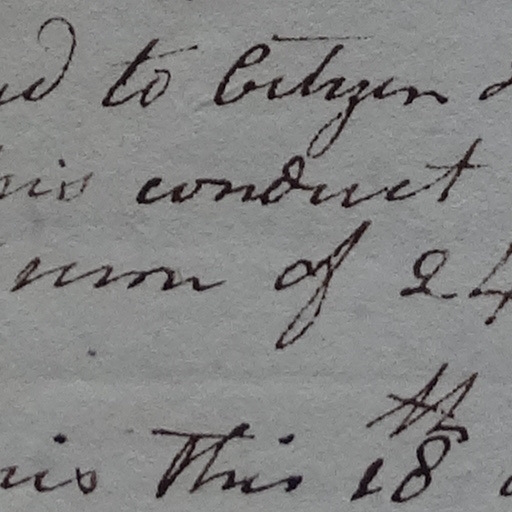 to Citizen
his conduct
sum of 24
this 18th